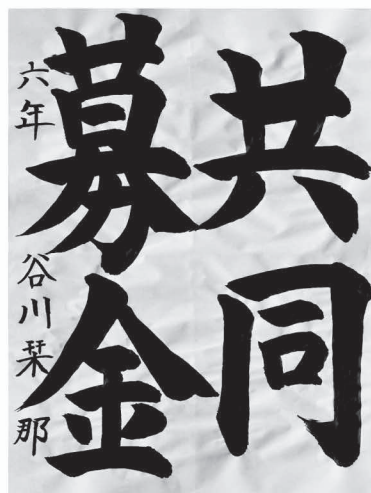 共同
募金
六年 谷川栞那